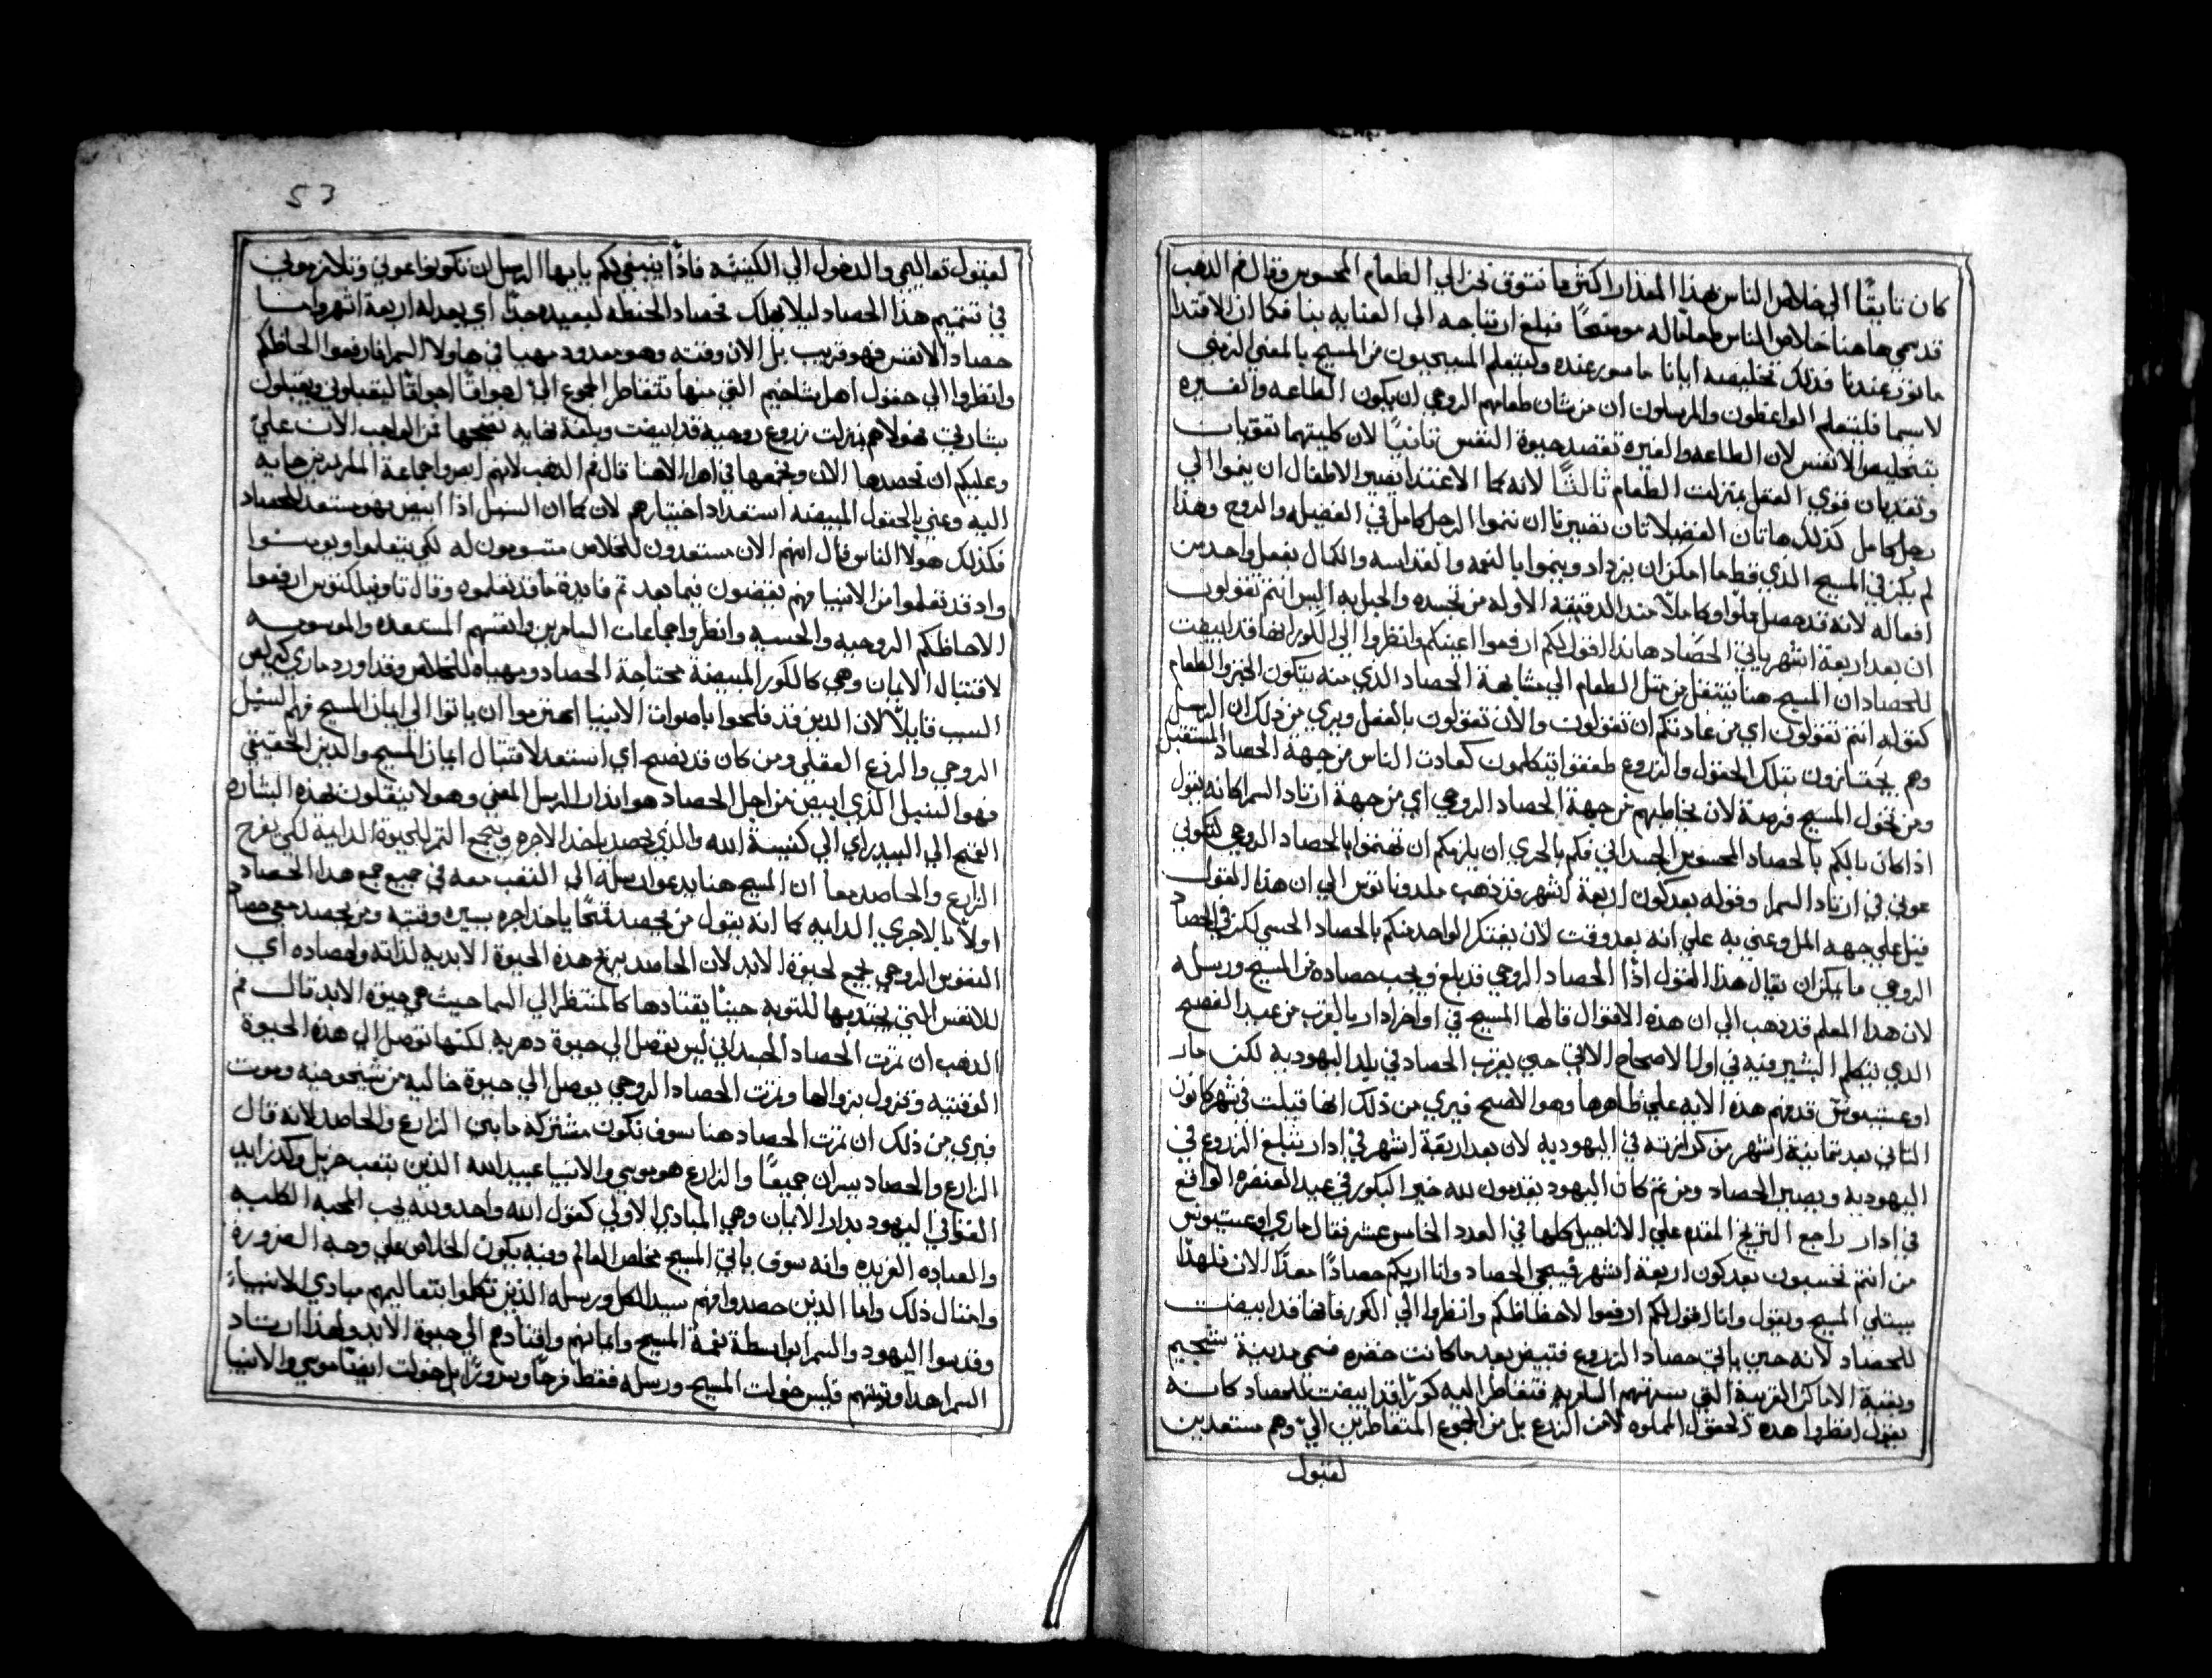 كان تايقًا الي خلاص الناس بهذا المقدار اكثر ما نتوق نحن الي الطعام المحسوس وقال فم الدهب
قد سمي هاهنا خلاص الناس طعامًا له موضحًا مبلغ ارتياحه الي العنايه بنا فكما ان الاقتدا
ماثور عندنا فذلك تخليصه ايانا ماسور عنده وليتعلم المسيحيون من المسيح بالمعني الرمزي
لاسيما فليتعلم الواعظون والمرسلون ان من شان طعامهم الروحي ان يكون الطاعه والغيره
بتخليص الانفس لان الطاعه والغيره تعضد حيوة النفس ثانيًا لان كلتيهما تقويات
وتغديان قوي العقل بمنزلت الطعام ثالثًا لانه كما الاغتدا يصير الاطفال ان ينموا الي
رجل كامل كذلك هاتان الفضيلاتان تصيرنا ان ننموا الرجل كامل في الفضيله والروح وهذا
لم يكن في المسيح الذي قط ما امكن ان يزداد وينموا بالنعمه والقداسه والكمال بفعل واحد من
افعاله لانه قد حصل مملوًا وكاملًا منذ الدقيقه الاوله من تجسده والحبل به اليس انتم تقولون
ان بعد اربعة اشهر ياتي الحصاد هاندا اقول لكم ارفعوا اعينكم وانظروا الي الكور انها قد ابيضت
للحصاد ان المسيح هنا ينتقل من مثل الطعام الي مشابهة الحصاد الذي منه يتكون الخبز والطعام
كقوله انتم تقولون اي من عادتكم ان تقولون والان تقولون بالفعل ويري من ذلك ان الرسل
وهم يجتازون بتلك الحقول والزروع طفقوا يتكلمون كعادت الناس من جهة الحصاد المستقبل
ومن تحول المسيح فرصة لان يخاطبهم من جهة الحصاد الروحي اي من جهة ارتاد السمرا كانه يقول
اذا كان بالكم بالحصاد المحسوس الجسداني فكم بالحري ان يلزمكم ان تهتموا بالحصاد الروحي لتكوني
عوني في ارتاد السمرا وقوله بعد كون اربعة اشهر قد ذهب ملدوناتوس الي ان هذا القول
قيل علي جهة المل وعني به علي انه بعد وقت لان يفتكر الواحد منكم بالحصاد الحسي لكن في الحصاد
الروحي ما يمكن ان يقال هذا القول اذًا الحصاد الروحي قد بلغ ويجب حصاده من المسيح ورسله
لان هدا المعلم قد ذهب الي ان هذه الاقوال قالها المسيح في اواخر ادار بالقرب من عيد الفصح
الدي يتكلم البشير فيه في اول الاصحاح الاتي حين يقرب الحصاد في بلد اليهوديه لكن مار
اوغستينوس قد فهم هذه الايه علي ظاهرها وهو الاصح فيري من ذلك انها قيلت في شهر كانون
التاني بعد تمانية اشهر من كرازته في اليهوديه لان بعد اربعة اشهر في ادار تبلغ الزروع في
اليهوديه ويصير الحصاد ومن تم كان اليهود يقدمون لله خبز البكور في عيد العنصره الواقع
في ادار راجع التاريخ المقدم علي الاناجيل كلها في العدد الخامس عشر فقال ماري اوغستينوس
من انتم تحسبون بعد كون اربعة اشهر فيجي الحصاد وانا اريكم حصادًا معدًا الان فلهذا
يبتلي المسيح ويقول وانا اقول لكم ارفعوا لاحظاظكم وانظروا الي الكور فانها قد ابيضت
للحصاد لانه حين ياتي حصاد الزروع فتبيض بعد ما كانت خضره فمن مدينة شخيم
وبقية الاماكن القريبة التي بشرتهم السامريه فتقاطر اليه كورًا قد ابيضت للحصاد كانه
يقول انظروا هده الحقول المملوه لا من الزرع بل من الجموع المتقاطرين اليّ وهم مستعدين
لقبول
53
لقبول تعاليمي والدخول الي الكنيسه فاذًا ينبغي لكم يا ايها الرسل ان تكونوا عوني وتلازموني
في تتميم هذا الحصاد ليلا يهلك فحصاد الحنطه لبعيد جدًا اي بعد له اربعة اشهر واما
حصاد الانفس فهو قريب بل الان وقته وهو معدود مهيا في هاولا السمرا فارفعوا الحاظكم
وانظروا الي حقول اهل شاخيم التي منها تتقاطر الجموع اليّ اهواقًا اجواقًا ليقبلوني ويقبلون
بشارتي فهولا هم بمنزلت زروع روحيه قد ابيضت وبلغة نهاية نضجها فمن الواجب الان عليّ
وعليكم ان نحصدها الان ونجمعها في اهرا الاهنا قال فم الدهب لانهم ابصروا جماعة السامريين جايه
اليه وعني بالحقول المبيضه استعداد اختيارهم لان كما ان السنبل اذا ابيض فهو مستعد للحصاد
فكذلك هولا الناس قال انهم الان مستعدون للخلاص متسومون له لكي يتعلموا ويومنوا
واد قد تعلموا من الانبيا فهم يقضون فيما بعد تم فايدة ما قد تعلموه وقال تاوفيلكتوس ارفعوا
الاحاظكم الروحيه والحسيه وانظروا جماعات السامريين وانفسهم المستعده والموسومه
لاقتبال الايمان وهي كالكور المبيضة محتاجة الحصاد ومهياه للخلاص وقد اورد ماري كيرلس
السبب قايلًا لان الدين قد فلحوا باصوات الانبيا اهتزموا ان ياتوا الي ايمان المسيح فهم السنبل
الروحي والزرع العقلي ومن كان قد نضج اي استعد لاقتبال ايمان المسيح والدين الحقيقي
فهو السنبل الذي ابيض من اجل الحصاد هو انذار الرسل المعني وهولا ينقلون بهذه البشاره
القمح الي البيدر اي الي كنيسة الله والذي يحصد ياخذ الاجره ويجمع التمر للحيوة الدايمة لكي يفرح
الزارع والحاصد معا ان المسيح هنا يدعو رسله الي التعب معه في جميع جمع هدا الحصاد
اولًا بالاجري الدايمه كما انه يقول من يحصد قمحًا ياخذ اجره يسيره وقتيه ومن يحصد معي حصاد
النفوس الروحي يجمع لحيوة الابد لان الحاصد يربح هده الحيوة الابديه لذاته ولحصاده اي
للانفس التي يجتدبها للتوبه حينيًا يقتادها كالمنتظر الي السما حيث هي حيوة الابد قال فم
الدهب ان تمرت الحصاد الجسداني ليس يوصل الي حيوة دهريه لكنها توصل الي هده الحيوة
الوقتيه وتزول بزوالها وتمرت الحصاد الروحي يوصل الي حيوة خاليه من شيخوخه وموت
فيري من ذلك ان تمرت الحصاد هنا سوف تكون مشتركه ما بين الزارع والحاصد لانه قال
الزارع والحصاد يسران جميعًا والزارع هو موسي والانبيا عبيد الله الذين بتعب جزيل وكد زايد
القوا في اليهود بدار الايمان وهي المبادي الاولي كقول الله واحد ولله يجب المحبه الكليه
والعباده الفريده وانه سوف ياتي المسيح مخلص العالم ومنه يكون الخلاص علي وجه الضروره
وامتال ذلك واما الدين حصدوا فهم سيد الكل ورسله الذين تكملوا بتعاليمهم مبادي الانبياء
وقدسوا اليهود والسمرا بواسطة نعمة المسيح وايمانهم واقتادهم الي حيوة الابد ولهذا ارتاد
السمرا هدا وتوبتهم فليس خولت المسيح ورسله فقط فرحًا وسرورًا بل خولت ايضًا موسي والانبيا